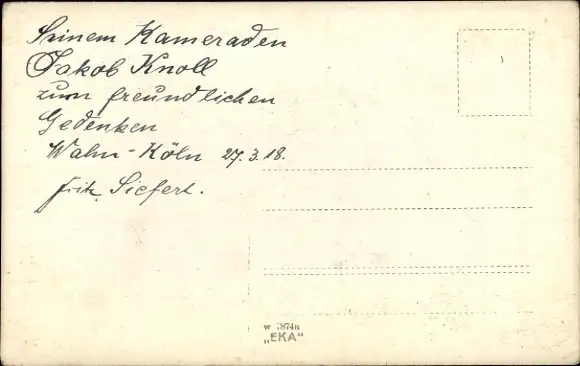 Seinem Kameraden
Jakob Knoll
zum freundlichen
Gedenken
Wahn-Köln 27.3.18.
Fritz Siefert.
W 7874a
„EKA“